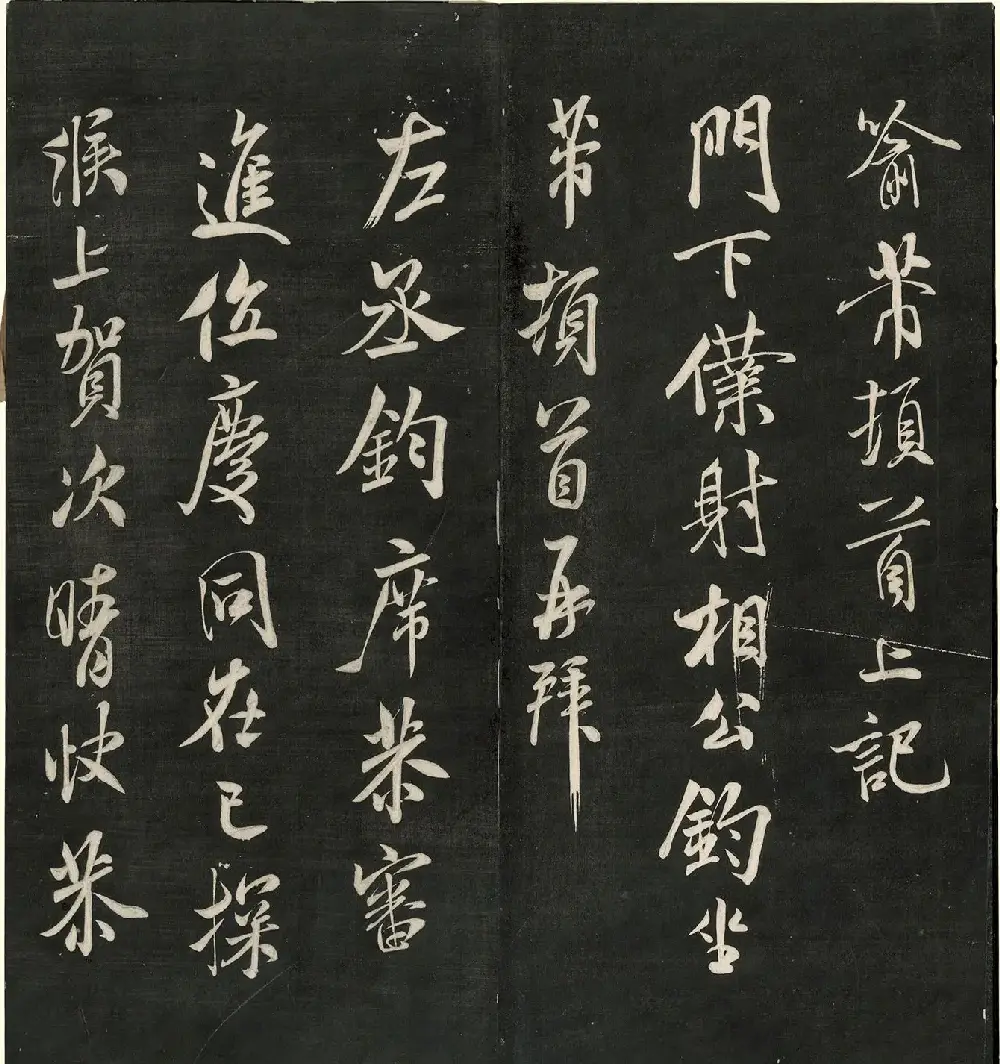 喻芾頓首上記
門下僕射相公鈞坐
芾頓首再拜
左丞鈞席恭審
進位慶同在已操
牋上賀次晴快恭